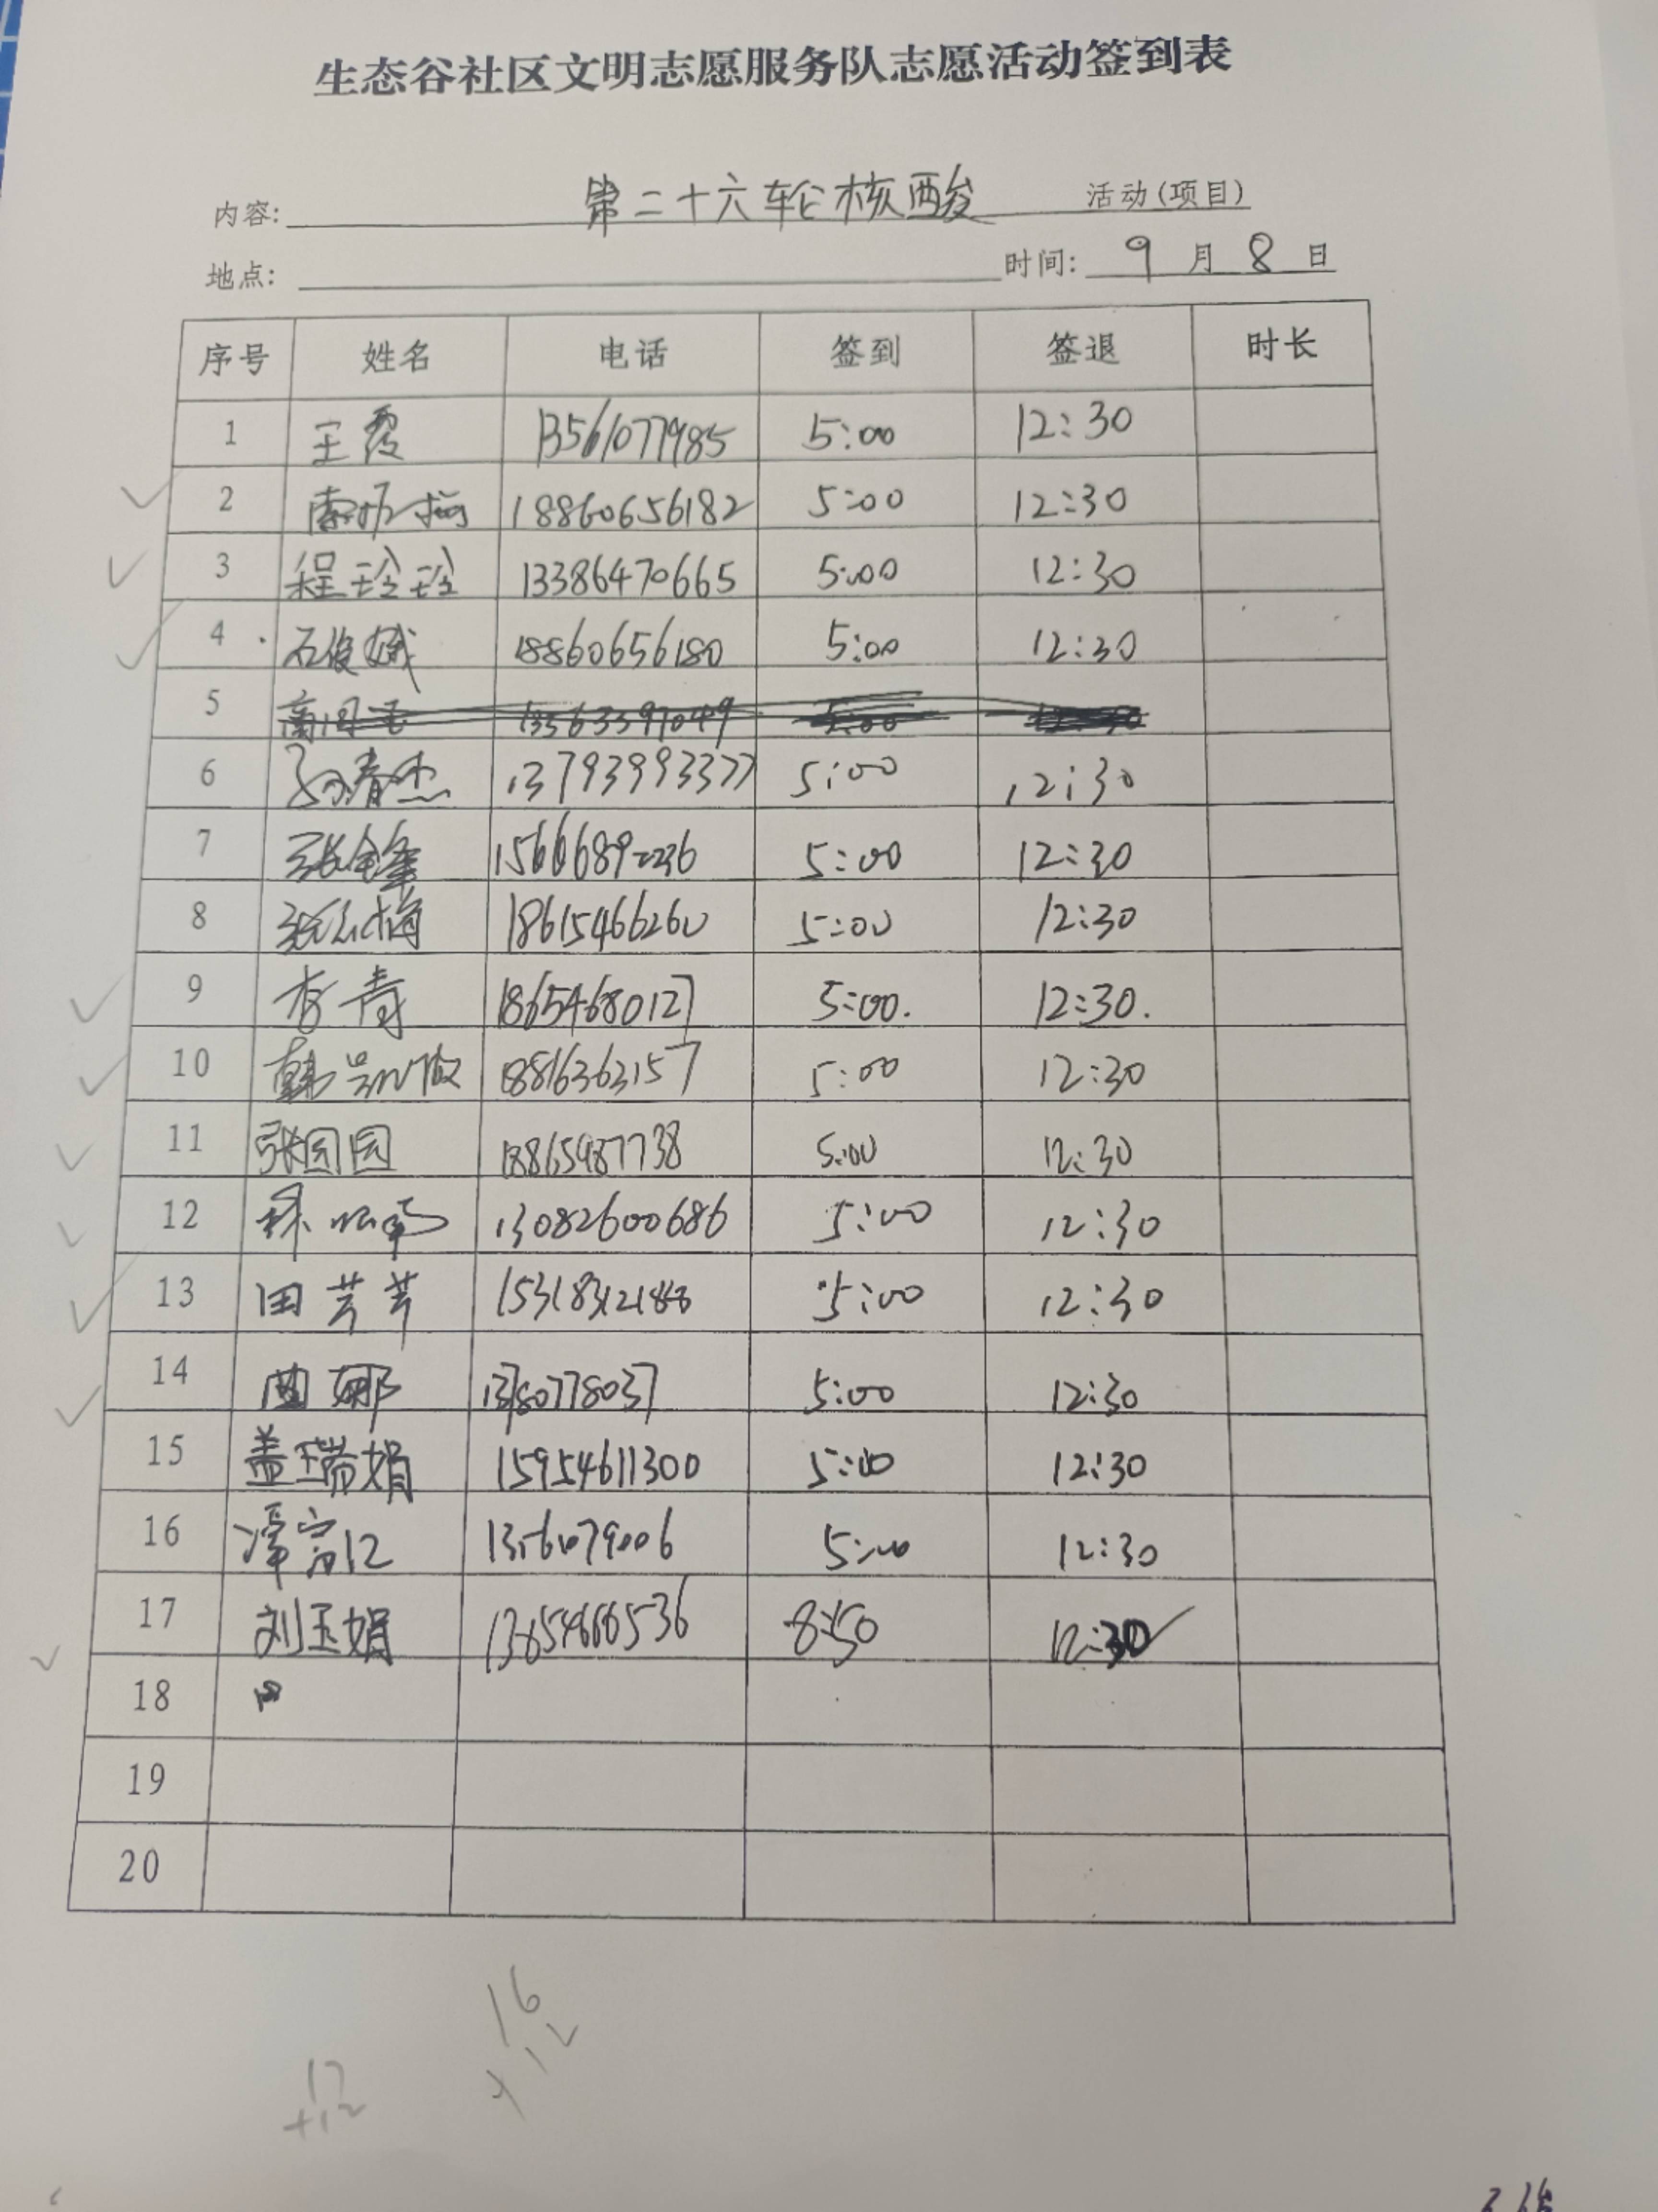 生态谷社区文明志愿服务队志愿活动签到表
内容: 第二十六轮核酸 活动(项目)
地点: 时间: 9 月 8 日
序号 姓名 电话 签到 签退 时长
1 王霞 13561077985 5:00 12:30
2 18860656182 5:00 12:30
3 程玲玲 13386470665 5:00 12:30
4 石俊娥 18860656180 5:00 12:30
5 13563397049 5:00
6 孙春杰 13793993377 5:00 12:30
7 张金峰 15666892236 5:00 12:30
8 张红梅 18615466260 5:00 12:30
9 李青 18654680127 5:00. 12:30.
10 韩 5:00 12:30
11 张园园 18865987738 5:00 12:30
12 13082600686 5:00 12:30
13 田芳芳 5:00 12:30
14 曲娜 5:00 12:30
15 盖瑞娟 15954611300 5:00 12:30
16 5:00 12:30
17 刘玉娟 8:50 12:30
18
19
20
16
+12
17
+12